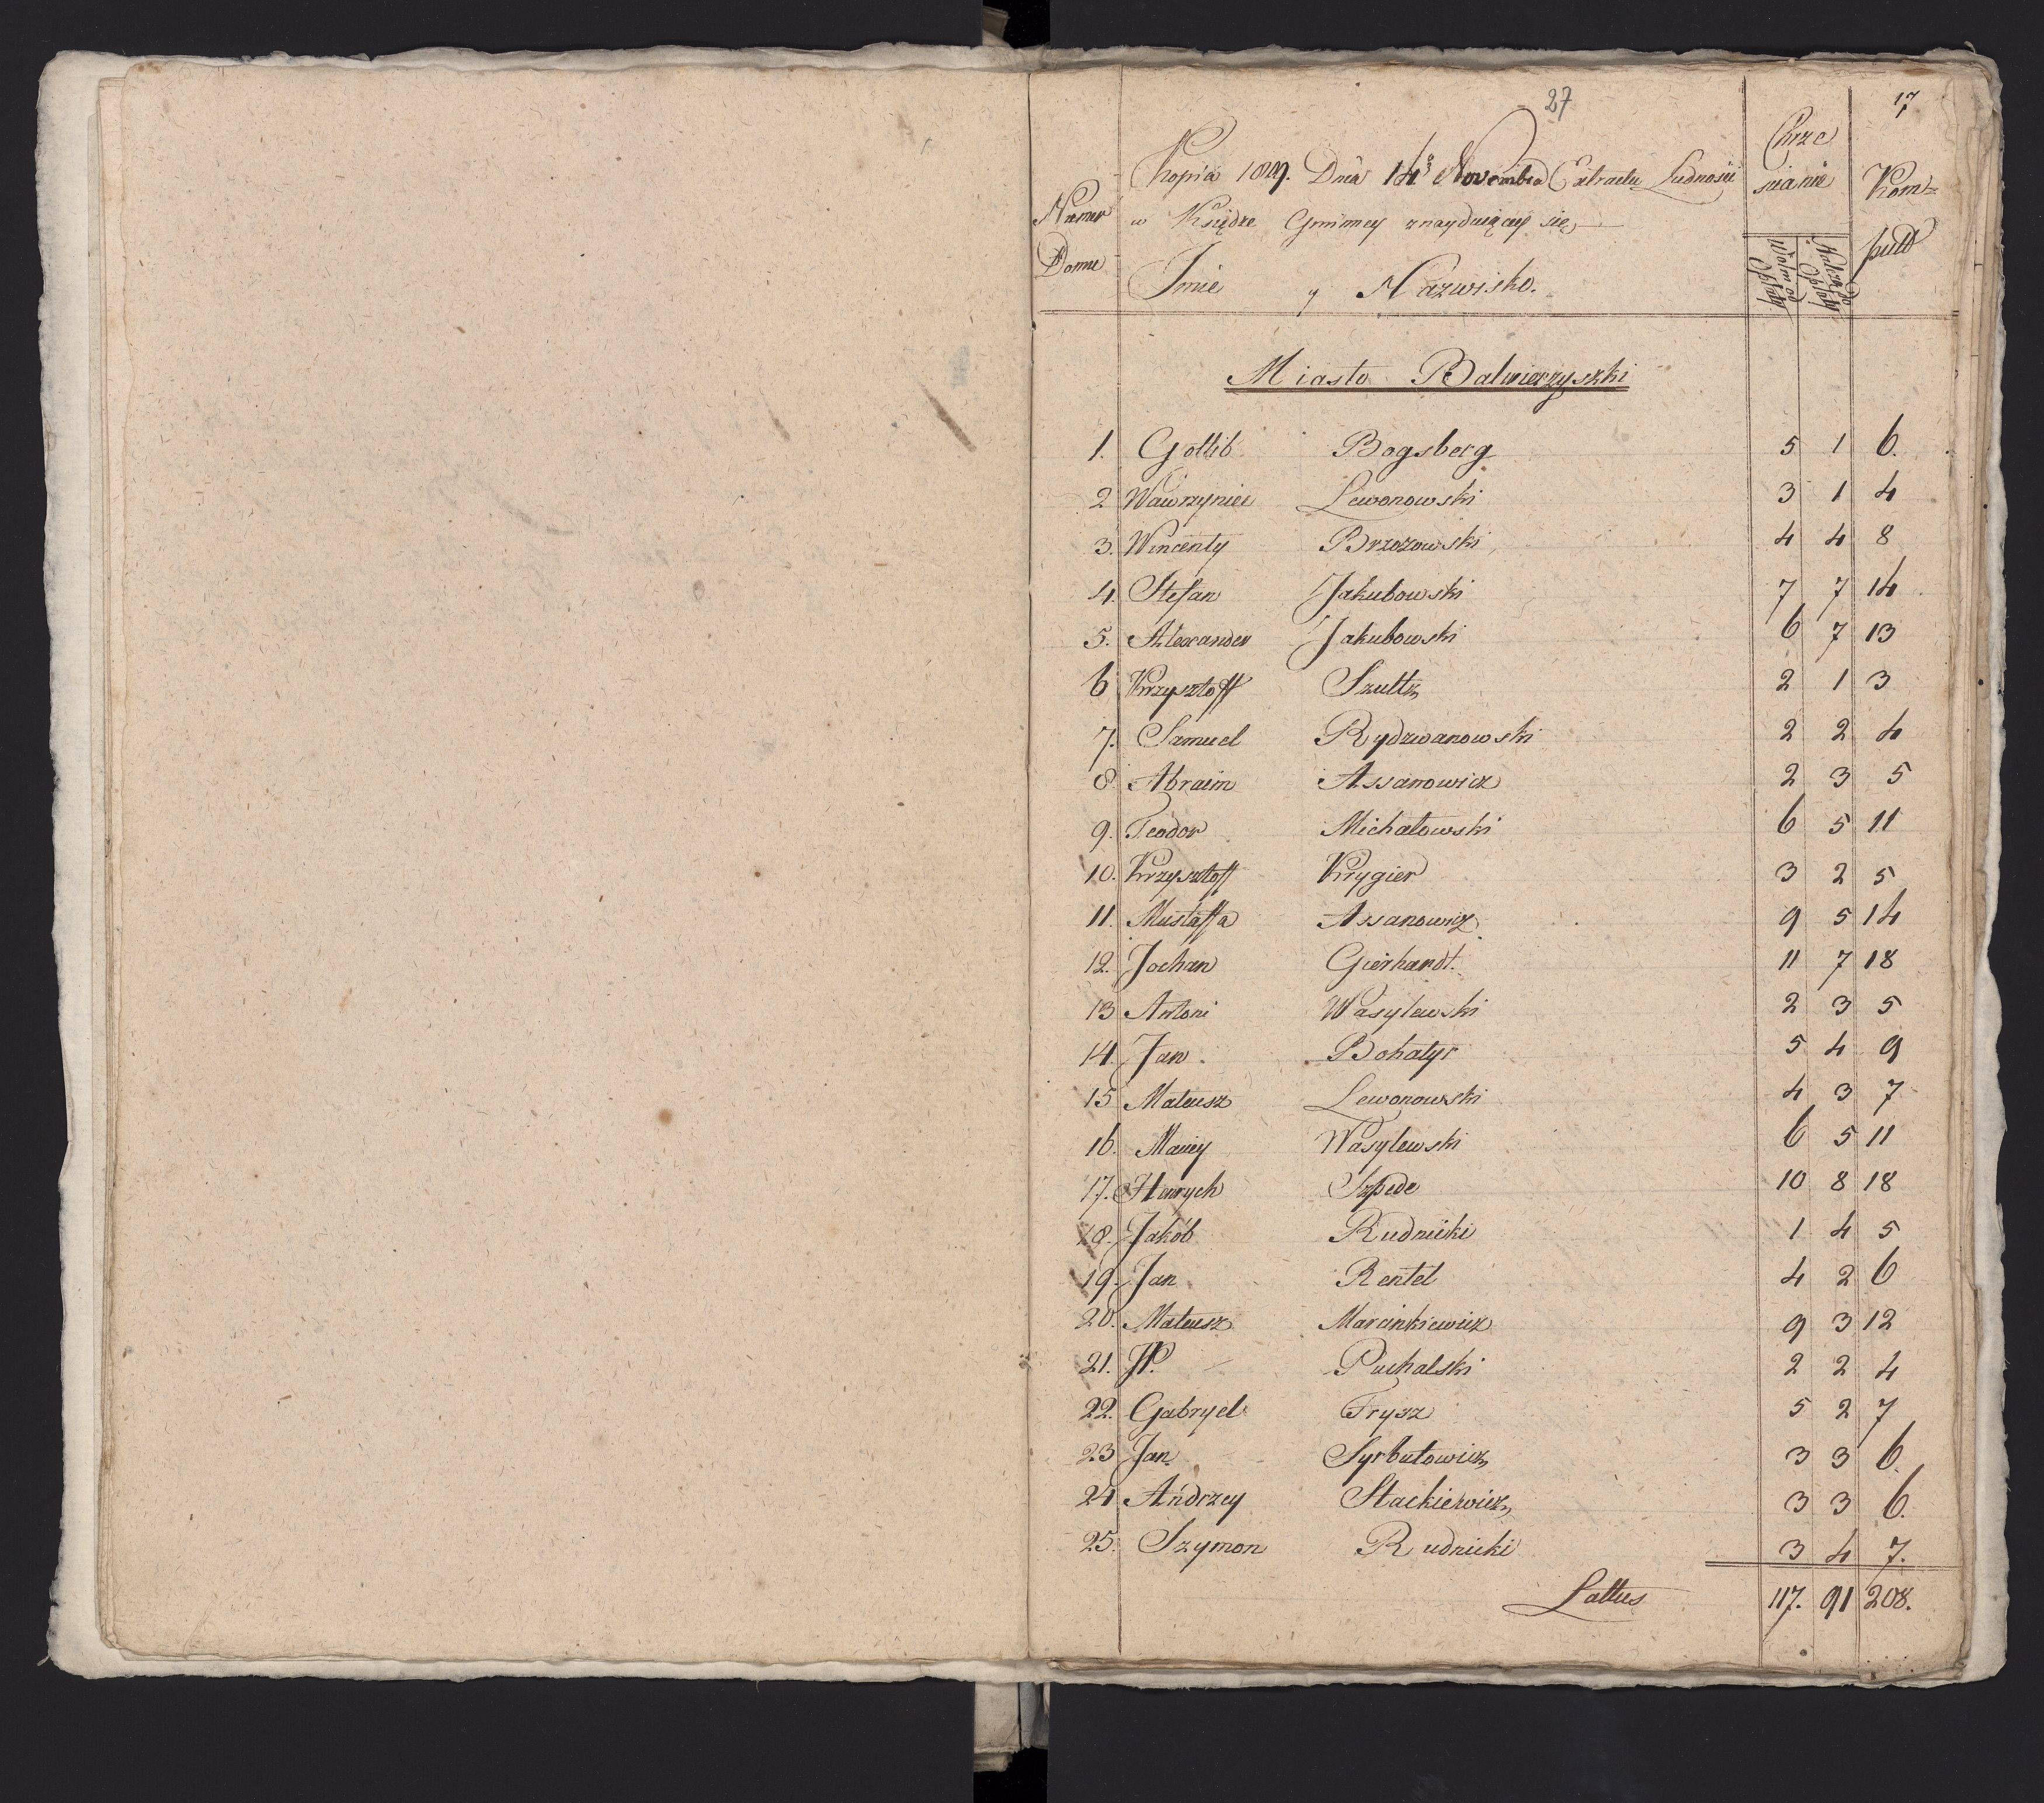 27
17
Kopia 1809. Dnia 14 Novembra Extractu Ludności
w Xiędze Gminney znayduiący się
Numer Domu
Imie y Nazwisko.
Chrzescianie
Wolni od Opłaty
Należą do Opłaty
Komputt
Miasto Balwierzyszki
1. Gottlib Bogsberg 5 1 6.
2 Wawrzyniec Lewonowski 3 1 4
3. Wincenty Brzozowski 4 4 8
4. Stefan Jakubowski 7 7 14
5. Alexander Jakubowski 6 7 13
6 Krzysztoff Szultz 2 1 3
7. Samuel Rydzwanowski 2 2 4
8 Abraim Assanowicz 2 3 5
9. Teodor Michałowski 6 5 11
10. Krzysztoff Krygier 3 2 5
11. Mustaffa Assanowicz 9 5 14
12. Jochan Gierhardt. 11 7 18
13 Antoni Wasylewski 2 3 5
14. Jan Bohatyr 5 4 9
15 Mateusz Lewonowski 4 3 7
16. Maciey Wasylewski 6 5 11
17. Henrych Szpede 10 8 18
18. Jakób Rudnicki 1 4 5
19. Jan Rentel 4 2 6
20. Mateusz Marcinkiewicz 9 3 12
21. JP. Puchalski 2 2 4
22. Gabryel Frysz 5 2 7
23 Jan Syrbutowicz 3 3 6.
24 Andrzey Stackiewicz 3 3 6.
25. Szymon Rudnicki 3 4 7.
Lattus 117. 91 208.